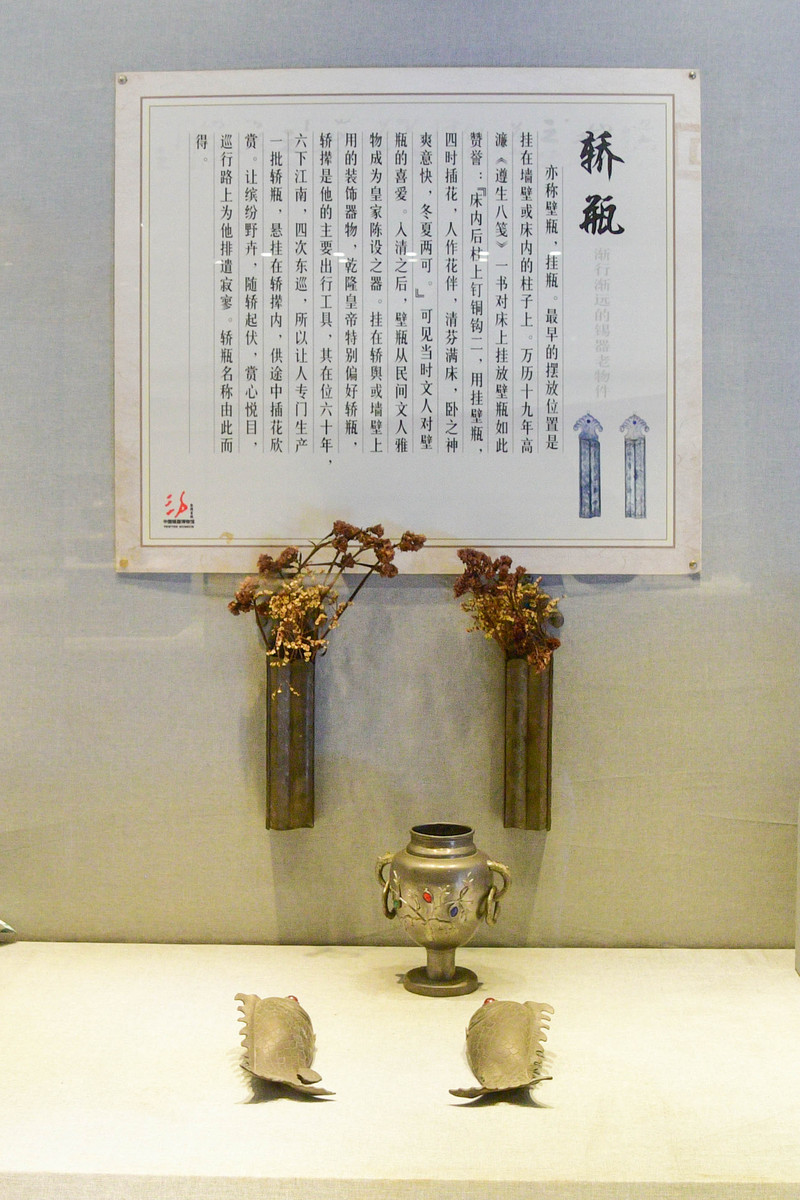 轿瓶
渐行渐远的锡器老物件
亦称壁瓶，挂瓶。最早的摆放位置是
挂在墙壁或床内的柱子上。万历十九年高
濂《遵生八笺》一书对床上挂放壁瓶如此
赞誉：『床内后柱上钉铜钩二，用挂壁瓶，
四时插花，人作花伴，清芬满床，卧之神
爽意快，冬夏两可。』可见当时文人对壁
瓶的喜爱。入清之后，壁瓶从民间文人雅
物成为皇家陈设之器。挂在轿舆或墙壁上
用的装饰器物，乾隆皇帝特别偏好轿瓶，
轿撵是他的主要出行工具，其在位六十年，
六下江南，四次东巡，所以让人专门生产
一批轿瓶，悬挂在轿撵内，供途中插花欣
赏。让缤纷野卉，随轿起伏，赏心悦目，
巡行路上为他排遣寂寥。轿瓶名称由此而
得。